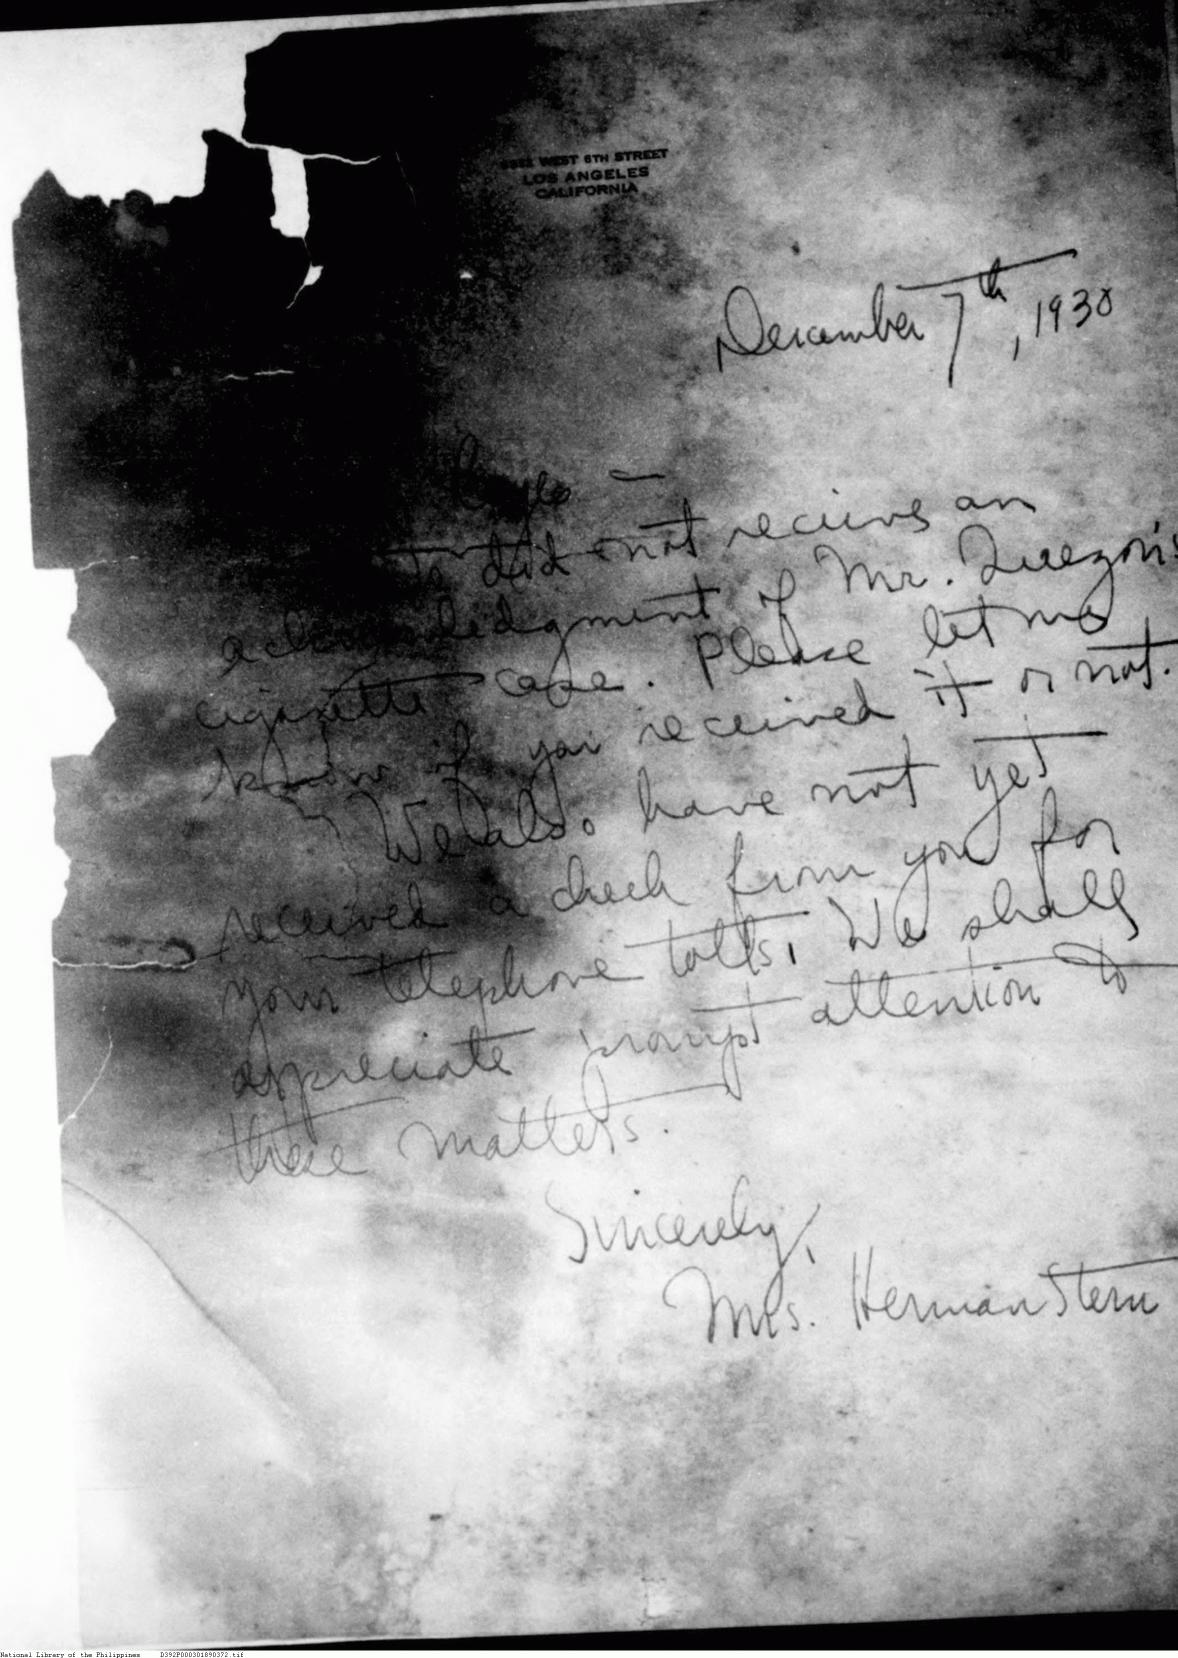 WEST 6TH STREET
LOS ANGELES
CALIFORNIA
December 7th, 1930
did not recieve an
acknowledgment of Mr. Quezon's
cigarette case. Please let me
know if you received it or not.
We also have not yet
received a check from you for
your telephone tolls. We shall
appreciate prompt attention to
these matters.
Sincerely,
Mrs. Herman Stern
National Library of the Philippines D392P000301890372.tif